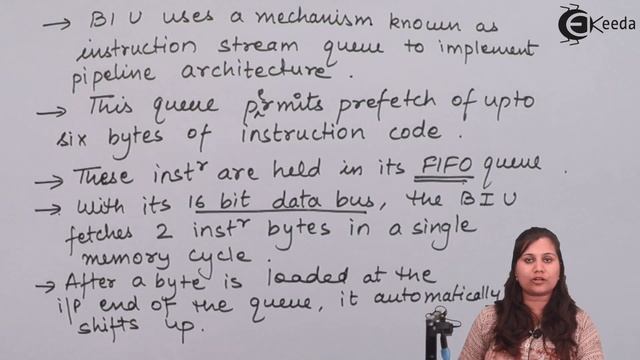 Ekeeda
→ BIU uses a mechanism known as
instruction stream queue to implement
pipeline architecture.
→ This queue permits prefetch of upto
six bytes of instruction code.
→ These instr are held in its FIFO queue.
→ With its 16 bit data bus, the BIU
fetches 2 instr bytes in a single
memory cycle.
→ After a byte is loaded at the
i/p end of the queue, it automatically
shifts up.